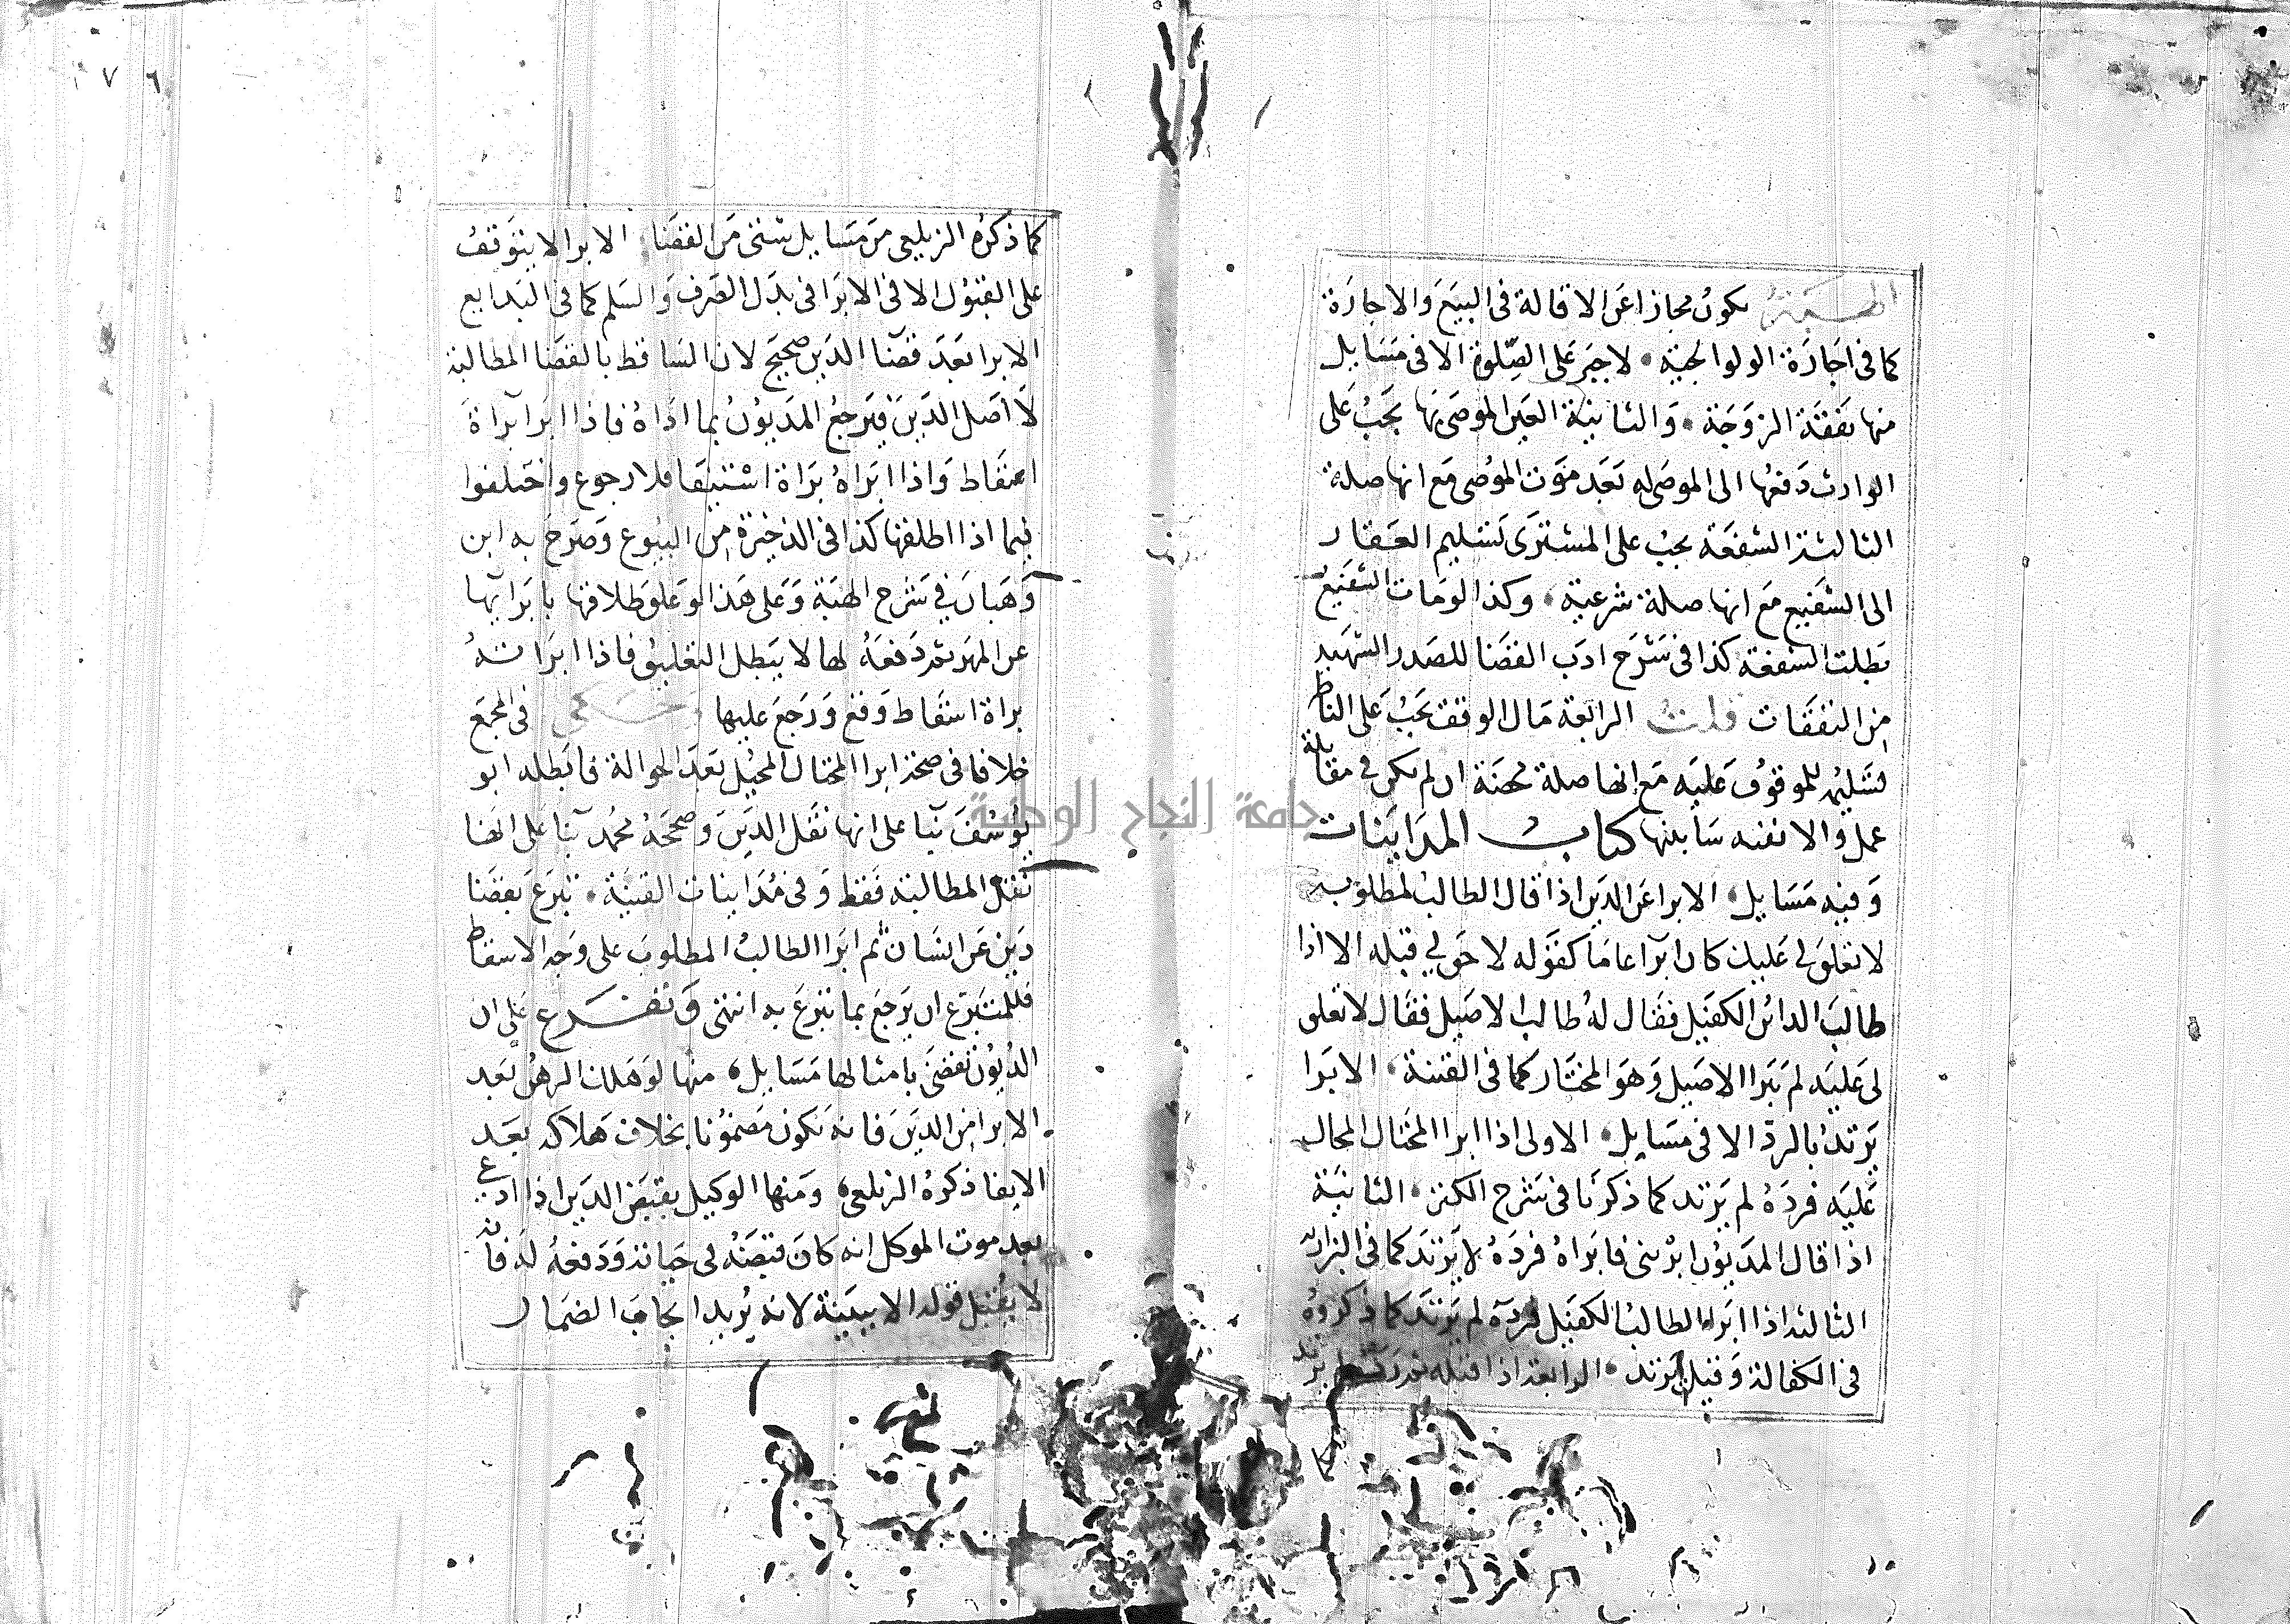 ١٧٦
الهبة يكون مجازا عن الاقالة في البيع والاجارة
كما في اجارة الولوالجية لا جبر على الصلوة الا في مسايل
منها نفقة الزوجة والثانية العين الموصى بها يجب على
الوارث دفعها الى الموصى له بعد موت الموصى مع انها صلة
الثالثة الشفعة يجب على المشترى تسليم العقار
الى الشفيع مع انها صلة شرعية وكذا لو مات الشفيع
بطلت الشفعة كذا في شرح ادب القضا للصدر الشهيد
من النفقات قلت الرابعة مال الوقف يجب على الناظر
تسليمه للموقوف عليه مع انها صلة محضة ان لم يكن في مقابلة
عمل والا ففيه شايبتها كتاب المداينات
وفيه مسايل الابرا عن الدين اذا قال الطالب لمطلوبه
لا تعلق لي عليك كان ابرا عاما كقوله لا حق لي قبله الا اذا
طالب الدائن الكفيل فقال له طالب الاصيل فقال لا تعلق
لى عليه لم يبرا الاصيل وهو المختار كما في القنية الابرا
يرتد بالرد الا في مسايل الاولى اذا ابرا المحتال المحال
عليه فرده لم يرتد كما ذكرنا في شرح الكنز الثانية
اذا قال المديون ابرئنى فابراه فرده لا يرتد كما في البزازية
الثالثة اذا ابرا الطالب الكفيل فرده لم يرتد كما ذكروه
في الكفالة وقيل يرتد الرابعة اذا قبله ثم رده لم يرتد
كما ذكره الزيلعي من مسايل شتى من القضا الابرا لا يتوقف
على القبول الا في الابرا في بدل الصرف والسلم كما في البدايع
الابرا بعد قضا الدين صحيح لان الساقط بالقضا المطالبة
لا اصل الدين فيرجع المديون بما اداه فاذا ابرا براة
اسقاط واذا ابراه براة استيفا فلا رجوع واختلفوا
فيما اذا اطلقها كذا في الذخيرة من البيوع وصرح به ابن
وهبان في شرح الهبة وعلى هذا لو علق طلاقها بابرايها
عن المهر ثم دفعه لها لا يبطل التعليق فاذا ابراته
براة اسقاط وقع ورجع عليها وحكى في المجمع
خلافا في صحة ابرا المحتال المحيل بعد الحوالة فابطله ابو
يوسف بنا على انها نقل الدين وصححه محمد بنا على انها
نقل المطالبة فقط وفي مداينات القنية تبرع بقضا
دين عن انسان ثم ابرا الطالب المطلوب على وجه الاسقاط
فللمتبرع ان يرجع بما تبرع به انتهى وتفرع على ان
الديون تقضى بامثالها مسايل منها لو هلك الرهن بعد
الابرا من الدين فانه يكون مضمونا بخلاف هلاكه بعد
الايفا ذكره الزيلعى ومنها الوكيل بقبض الدين اذا ادعى
بعد موت الموكل انه كان قبضه في حياته ودفعه له فانه
لا يقبل قوله الا ببينة لانه يريد ايجاب الضمان
جامعة النجاح الوطنية